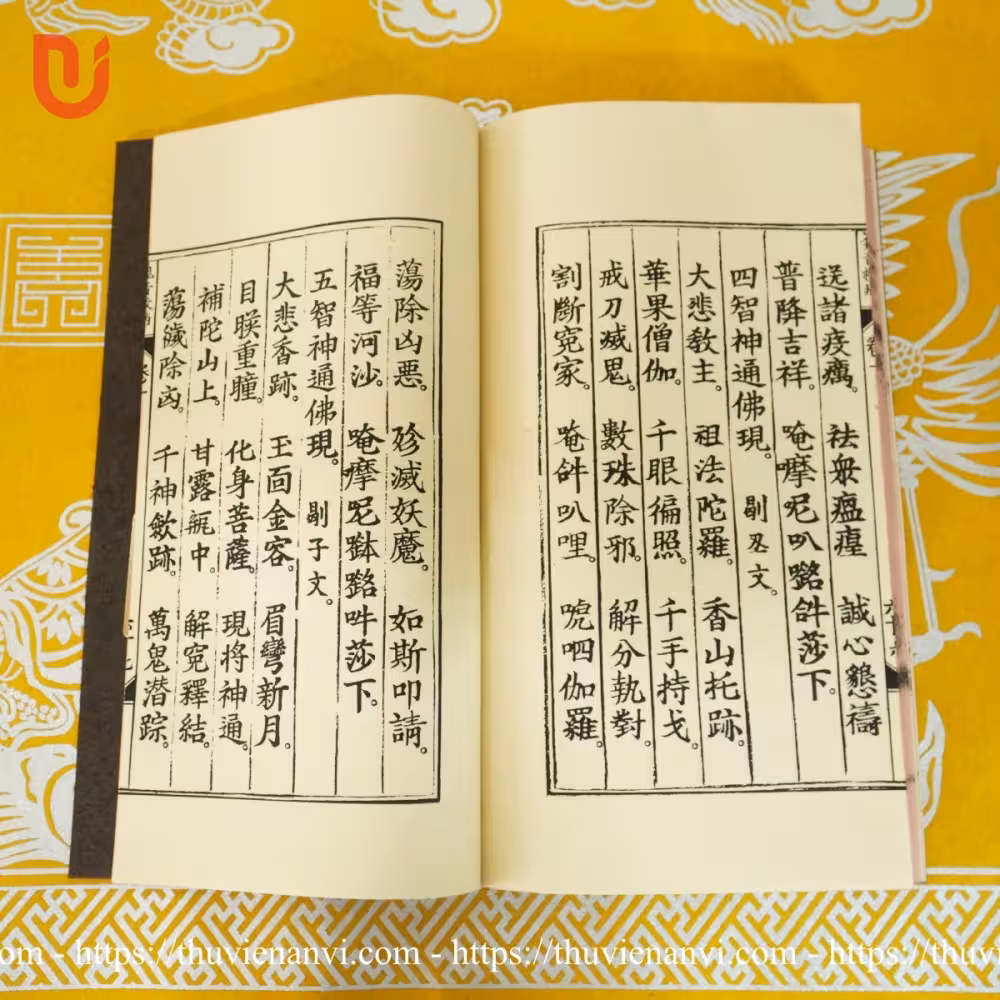 送諸疫癘。 祛衆瘟 誠心懇禱
普降吉祥。 唵嚤呢叭𡀔𤙖莎下。
四智神通佛現。 文。
大悲教主。 祖法陀羅。 香山托跡。
華果僧伽。 千眼徧照。 千手持戈。
戒刀滅鬼。 數珠除邪。 解分執對。
割斷冤家。 唵𤙖叭哩。 唬呬伽羅。
蕩除凶悪。 殄滅妖魔。 如斯叩請。
福等河沙。 唵摩呢鉢𡀔吽莎下。
五智神通佛現。 子文。
大悲香跡。 玉面金容。 眉彎新月。
目睒重瞳。 化身菩薩。 現將神通。
補陀山上。 甘露瓶中。 解冤釋結。
蕩穢除凶。 千神歛跡。 萬鬼潜踪。
.com - https://thuvienanvi.com - https://thuvienanvi.com - https://thuvienanvi.co